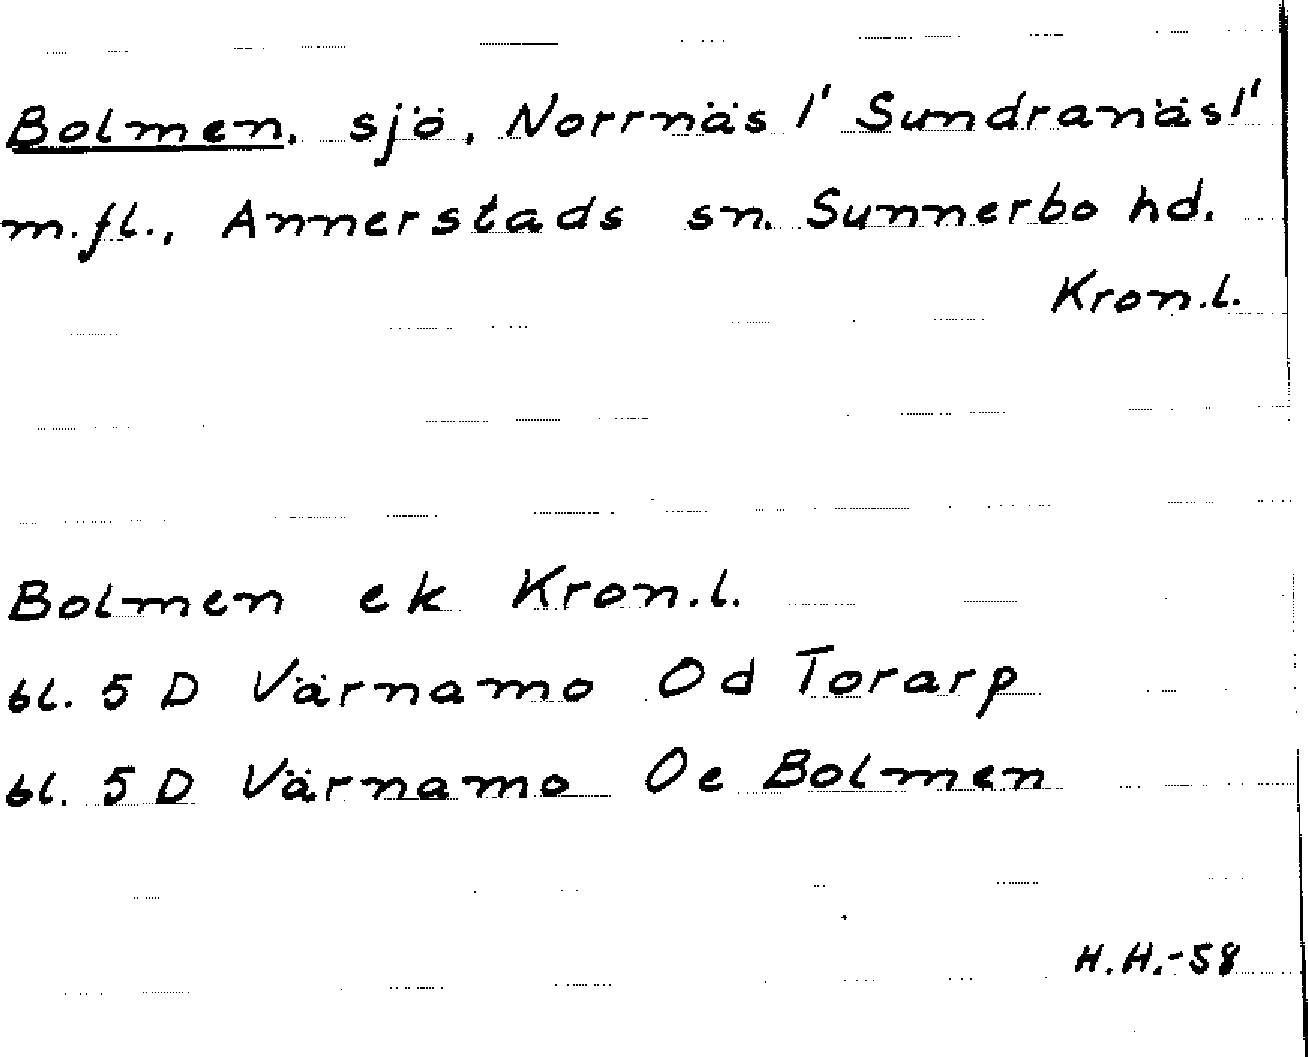 Bolmen, sjö, Norrnäs 1' Sundranäs 1'
m.fl., Annerstads sn. Sunnerbo hd.
Kron.l.
Bolmen ek Kron.l.
bl. 5 D Värnamo Od Torarp
bl. 5 D Värnamo Oe Bolmen
H.H.-58